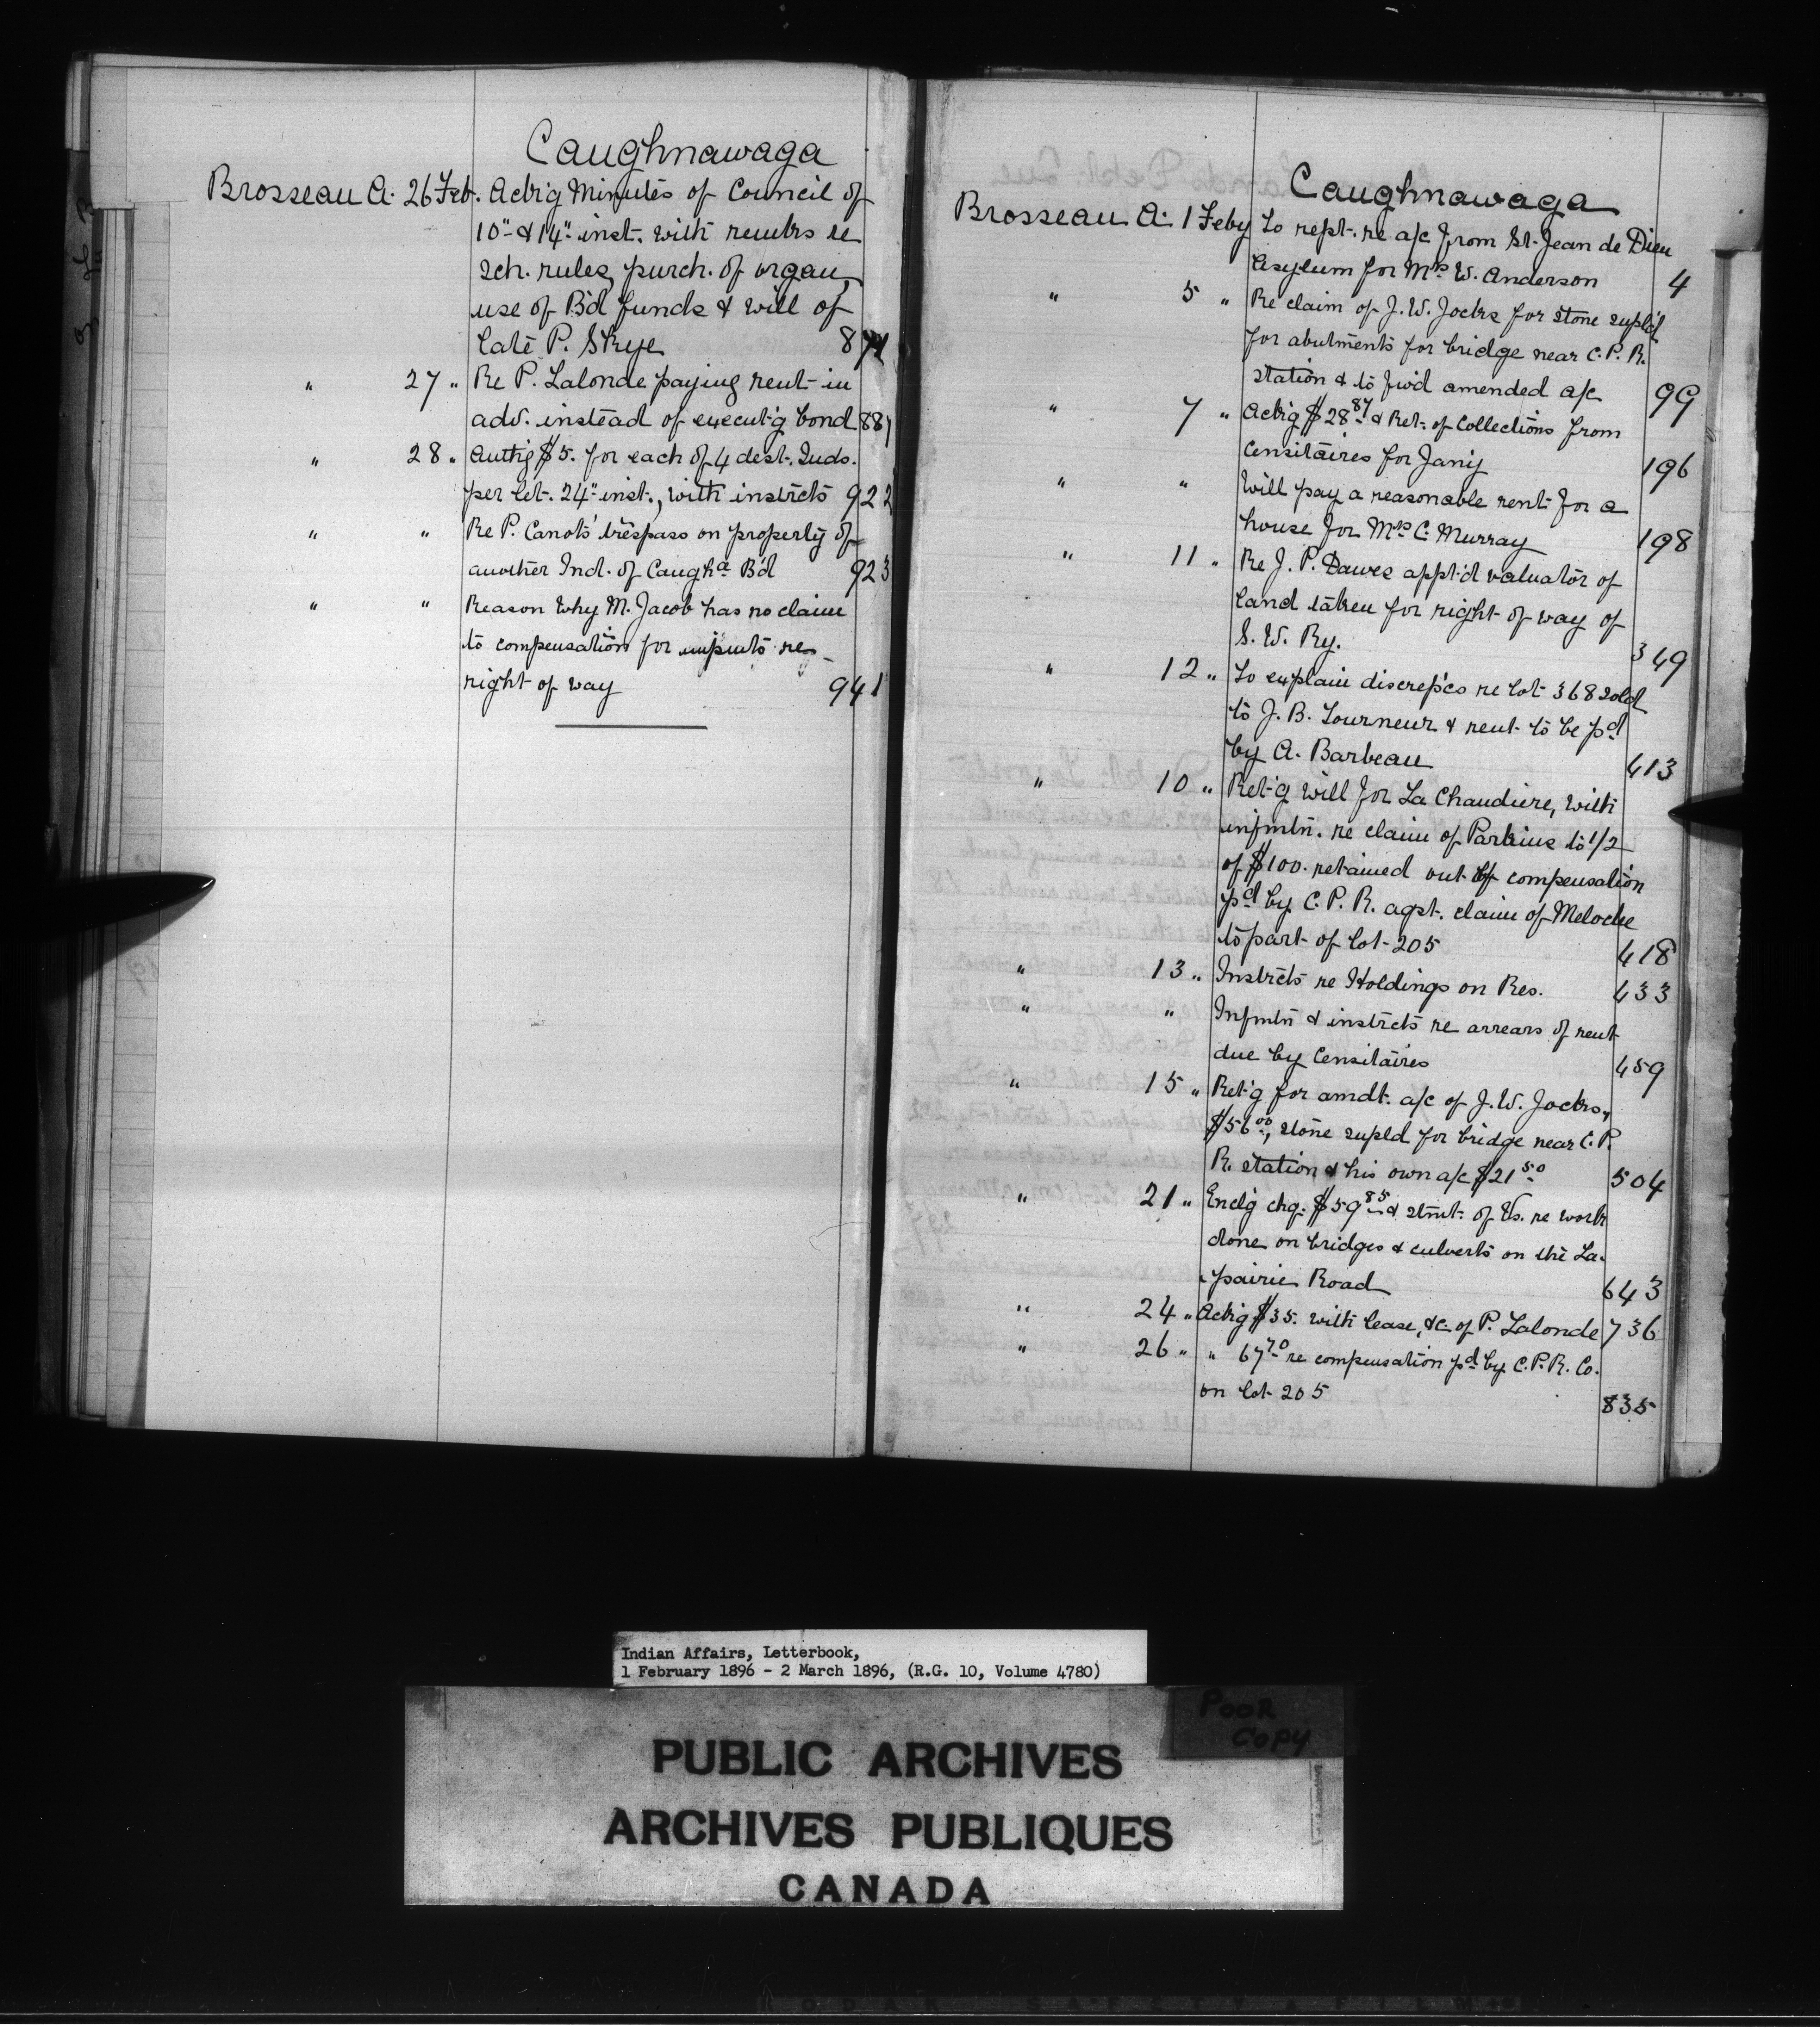 Caughnawaga
Brosseau A. 26 Feb. Ackg Minutes of Council of
10" & 14" inst. with remrks re
Sch. rules, purch. of organ,
use of B'd funds & will of
late P. Skye
" 27 " Re P. Lalonde paying rent in
adv. instead of execut'g bond 887
" 28 " Authg $5. for each of 4 dest. Inds.
per let. 24" inst., with instrcts 922
" " Re P. Canots' trespass on property of
another Ind. of Caugha B'd 923
" " Reason why M. Jacob has no claim
to compensation for impmts re
right of way 941
Caughnawaga
Brosseau A. 1 Feby To rept. re a/c from St. Jean de Dieu
Asylum for Mrs W. Anderson 4
" 5 " Re claim of J. W. Jocks for stone supl'd
for abutments for bridge near C. P. R.
station & to fwd amended a/c 99
" 7 " Ackg $28 87 & Ret. of Collections from
Censitaires for Jany 196
" " Will pay a reasonable rent for a
house for Mrs C. Murray 198
" 11 " Re J. P. Dawes appt'd valuator of
land taken for right of way of
S. W. Ry. 349
" 12 " To explain discrep'cs re lot 368 sold
to J. B. Tourneur & rent to be pd
by A. Barbeau 413
" 10 " Ret'g will for La Chaudiere, with
infmtn. re claim of Parkins to 1/2
of $100. retained out of compensation
pd by C. P. R. agst. claim of Meloche
to part of lot 205 418
" 13 " Instrcts re Holdings on Res. 433
" " Infmtn & instrcts re arrears of rent
due by Censitaires 459
" 15 " Ret'g for amdt. a/c of J. W. Jocks,
$56 00, stone supld for bridge near C. P.
R. station & his own a/c $21 50 504
" 21 " Enclg chq. $59 85 & stmt. of Vs. re work
done on bridges & culverts on the La-
prairie Road 643
" 24 " Ackg $35. with lease, &c. of P. Lalonde 736
" 26 " " 67 70 re compensation pd by C. P. R. Co.
on lot 205 835
Indian Affairs, Letterbook,
1 February 1896 - 2 March 1896, (R.G. 10, Volume 4780)
POOR
COPY
PUBLIC ARCHIVES
ARCHIVES PUBLIQUES
CANADA